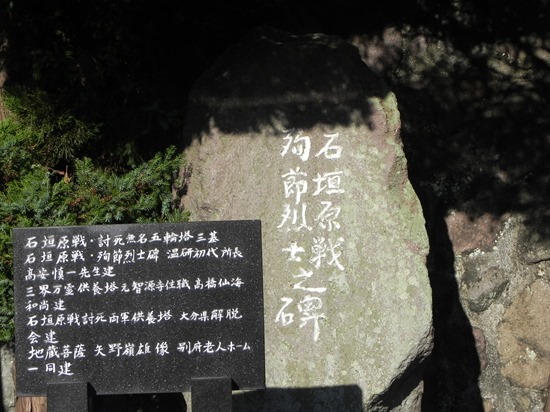 石垣原戦
殉節烈士之碑
石垣原戦・討死無名五輪塔三基
石垣原戦・殉節烈士碑 温研初代所長
高安慎一先生建
三界万霊供養塔元智源寺住職高橋仙海
和尚建
石垣原戦討死両軍供養塔 大分県解脱
会建
地蔵菩薩 矢野嶺雄像 別府老人ホーム
一同建